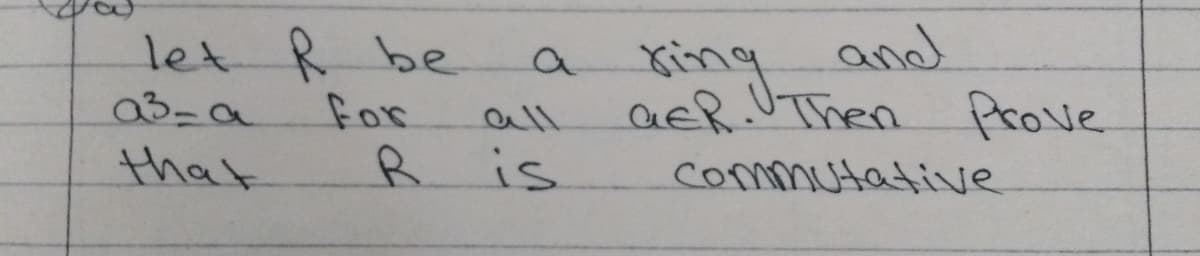 let R be a ring and
a3=a for all a∈R. Then Prove
that R is commutative